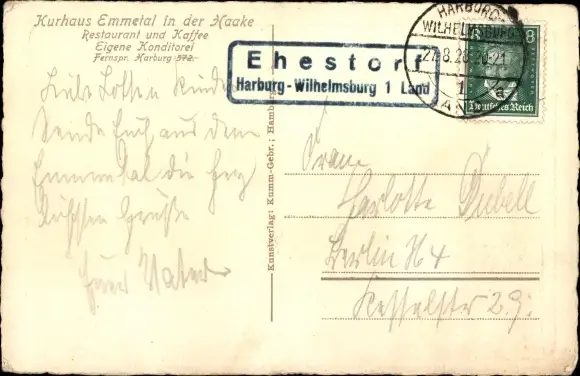 Kurhaus Emmetal in der Haake
Restaurant und Kaffee
Eigene Konditorei
Fernspr. Harburg 572.
Ehestorf
Harburg-Wilhelmsburg 1 Land
HARBURG-
WILHELMSBURG
27.8.28.20-21
1 a
8
Deutsches Reich
Liebe Kinder
Sende Euch aus dem
Emmental die herz
lichsten Grüße
Euer Vater
Kunstverlag: Kumm-Gebr.; Hamburg
Frau
Charlotte Dubell
Berlin N 4
Kesselstr 29.